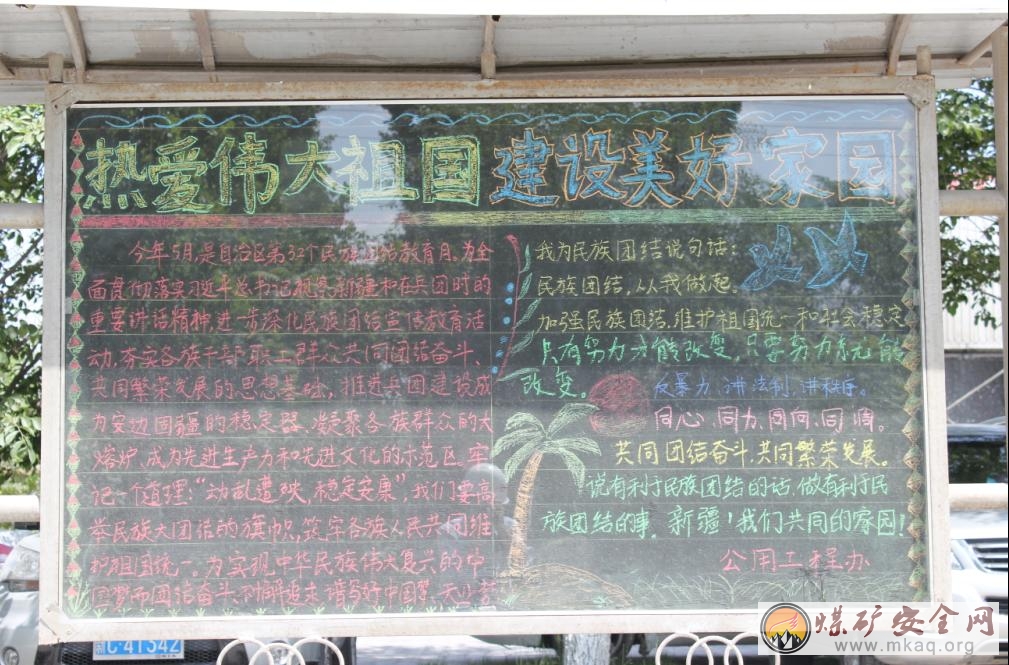 热爱伟大祖国 建设美好家园
今年5月,是自治区第32个民族团结教育月。为全
面贯彻落实习近平总书记视察新疆和在兵团时的
重要讲话精神,进一步深化民族团结宣传教育活
动,夯实各族干部职工群众共同团结奋斗、
共同繁荣发展的思想基础,推进兵团建设成
为安边固疆的稳定器、凝聚各族群众的大
熔炉、成为先进生产力和先进文化的示范区。牢
记一个道理:“动乱遭殃,稳定安康”,我们要高
举民族大团结的旗帜,筑牢各族人民共同维
护祖国统一。为实现中华民族伟大复兴的中
国梦而团结奋斗
我为民族团结说句话:
民族团结,从我做起。
加强民族团结,维护祖国统一和社会稳定
只有努力才能改变,只要努力就能
改变。
反暴力,讲法制,讲秩序。
同心,同力,同向,同
共同团结奋斗,共同繁荣发展。
说有利于民族团结的话,做有利于民
族团结的事。新疆!我们共同的家园!
公用工程办
C·41342
煤矿安全网
www.mkaq.org